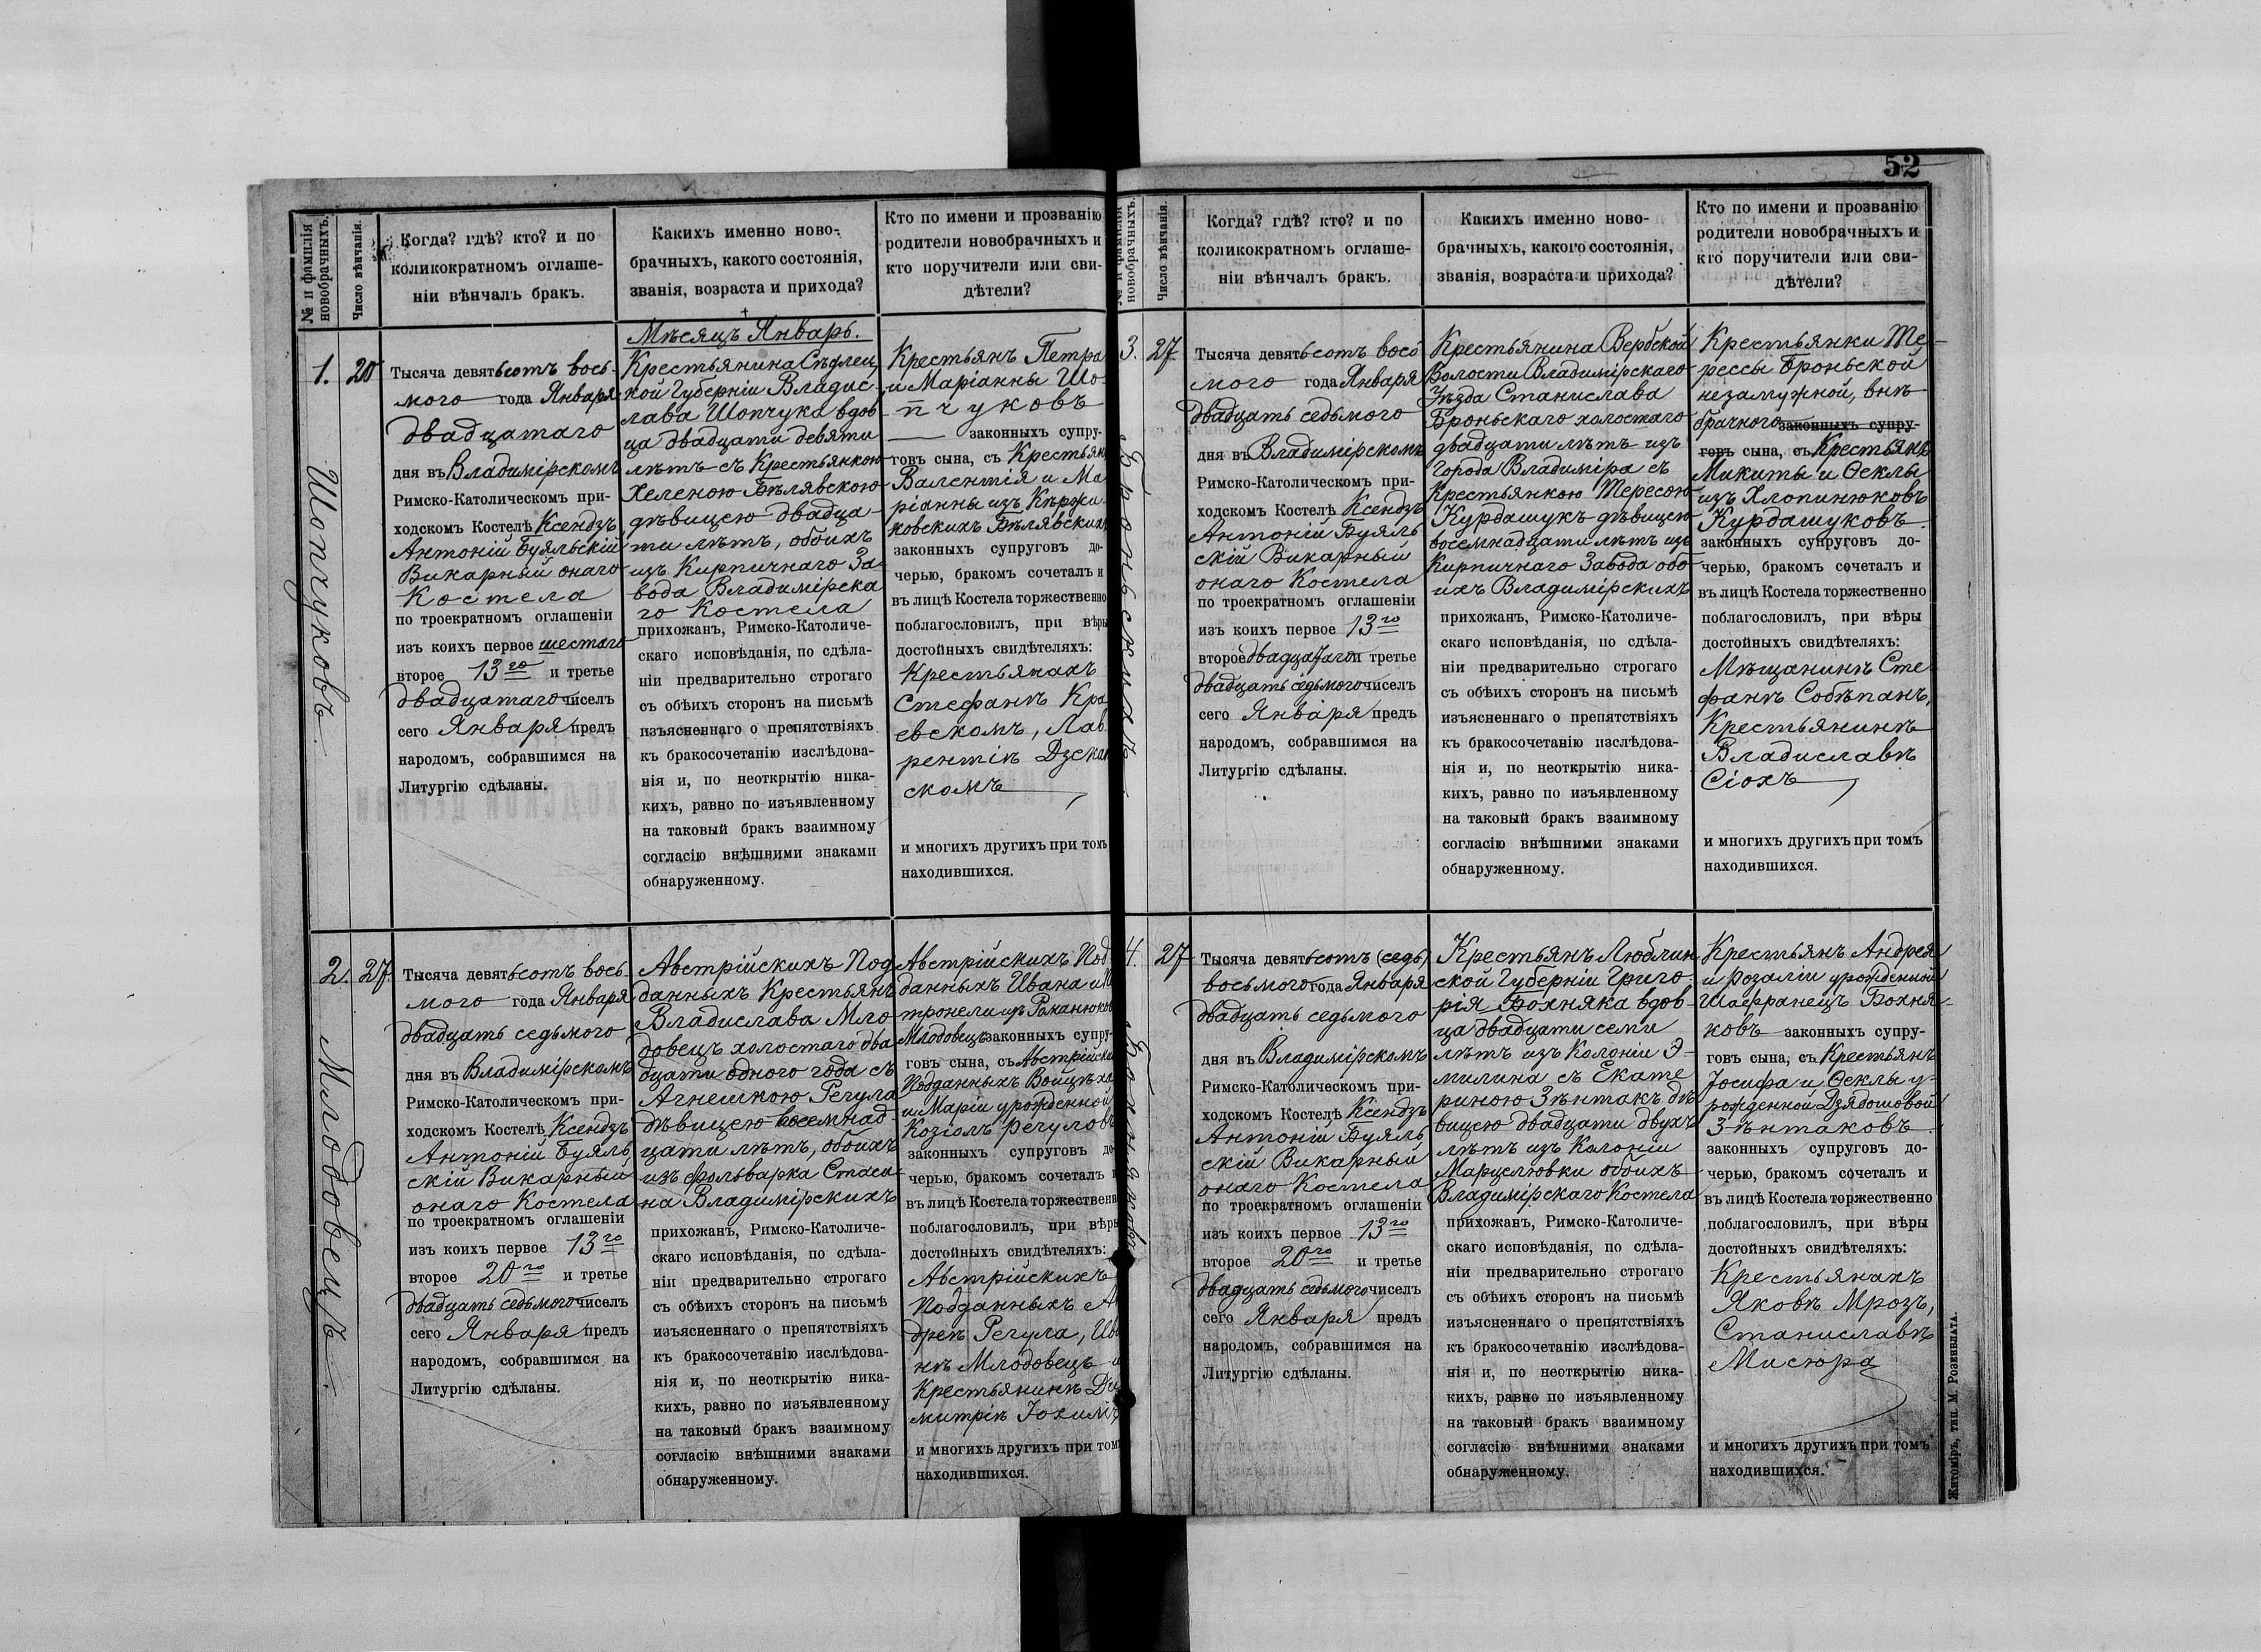 52
№ и фамилія новобрачныхъ.
Число вѣнчанія.
Когда? гдѣ? кто? и по
коликократномъ оглаше-
ніи вѣнчалъ бракъ.
Какихъ именно ново-
брачныхъ, какого состоянія,
званія, возраста и прихода?
Кто по имени и прозванію
родители новобрачныхъ и
кто поручители или сви-
дѣтели?
1.
20
Шопчуковъ.
Тысяча девятьсотъ вось-
мого года Января
двадцатаго
дня въ Владимірскомъ
Римско-Католическомъ при-
ходскомъ Костелѣ Ксендзъ
Антоній Буяльскій
Викарный онаго
Костела
по троекратномъ оглашеніи
изъ коихъ первое шестаго
второе 13го и третье
двадцатаго чиселъ
сего Января предъ
народомъ, собравшимся на
Литургію сдѣланы.
Мѣсяцъ Январь.
Крестьянина Сѣдлец
кой Губерніи Владис
лава Шопчука вдов
ца двадцати девяти
лѣтъ съ Крестьянкою
Хеленою Бѣлявскою
дѣвицею двадца-
ти лѣтъ, обоихъ
изъ Кирпичнаго За-
вода Владимірска
го Костела
прихожанъ, Римско-Католиче-
скаго исповѣданія, по сдѣла-
ніи предварительно строгаго
съ обѣихъ сторонъ на письмѣ
изъясненнаго о препятствіяхъ
къ бракосочетанію изслѣдова-
нія и, по неоткрытію ника-
кихъ, равно по изъявленному
на таковый бракъ взаимному
согласію внѣшними знаками
обнаруженному.
Крестьянъ Петра
и Маріанны Шо-
пчуковъ
законныхъ супру-
говъ сына, съ Крестьян
Валентія и Ма
ріанны изъ
ковскихъ Бѣлявскихъ
законныхъ супруговъ до-
черью, бракомъ сочеталъ и
въ лицѣ Костела торжественно
поблагословилъ, при вѣры
достойныхъ свидѣтеляхъ:
Крестьянахъ
Стефанѣ Кра
евскомъ, Лав
рентіѣ
скомъ
и многихъ другихъ при томъ
находившихся.
2.
27.
Млодовецъ.
Тысяча девятьсотъ вось-
мого года Января
двадцать седьмого
дня въ Владимірскомъ
Римско-Католическомъ при-
ходскомъ Костелѣ Ксендзъ
Антоній Буяль
скій Викарный
онаго Костела
по троекратномъ оглашеніи
изъ коихъ первое 13го
второе 20го и третье
двадцать седьмого чиселъ
сего Января предъ
народомъ, собравшимся на
Литургію сдѣланы.
Австрійскихъ Под
данныхъ Крестьянъ
Владислава Мло
довецъ холостаго два
дцати одного года съ
Агнешкою Регула
дѣвицею восемнад-
цати лѣтъ, обоихъ
изъ фольварка Стаси-
на Владимірскихъ
прихожанъ, Римско-Католиче-
скаго исповѣданія, по сдѣла-
ніи предварительно строгаго
съ обѣихъ сторонъ на письмѣ
изъясненнаго о препятствіяхъ
къ бракосочетанію изслѣдова-
нія и, по неоткрытію ника-
кихъ, равно по изъявленному
на таковый бракъ взаимному
согласію внѣшними знаками
обнаруженному.
Австрійскихъ Под
данныхъ Ивана и
тронели изъ
Млодовецъ законныхъ супру-
говъ сына, съ Австрійски
Подданныхъ Войцѣха
и Маріи урожденной
Козіолъ Регуловъ
законныхъ супруговъ до
черью, бракомъ сочеталъ
въ лицѣ Костела торжествен
поблагословилъ, при вѣры
достойныхъ свидѣтеляхъ:
Австрійскихъ
Подданныхъ Ан
дреѣ Регула, Ива
нѣ Млодовецъ и
Крестьянинѣ Ди
митріѣ Іохимъ
и многихъ другихъ при том
находившихся.
№ и фамилія новобрачныхъ.
Число вѣнчанія.
Когда? гдѣ? кто? и по
коликократномъ оглаше-
ніи вѣнчалъ бракъ.
Какихъ именно ново-
брачныхъ, какого состоянія,
званія, возраста и прихода?
Кто по имени и прозванію
родители новобрачныхъ и
кто поручители или сви-
дѣтели?
3.
27
Броньскихъ
Тысяча девятьсотъ вось
мого года Января
двадцать седьмого
дня въ Владимірскомъ
Римско-Католическомъ при-
ходскомъ Костелѣ Ксендзъ
Антоній Буяль
скій Викарный
онаго Костела
по троекратномъ оглашеніи
изъ коихъ первое 13го
второе двадцатаго и третье
двадцать седьмого чиселъ
сего Января предъ
народомъ, собравшимся на
Литургію сдѣланы.
Крестьянина Вербской
Волости Владимірскаго
Уѣзда Станислава
Броньскаго холостаго
двадцати лѣтъ изъ
города Владиміра съ
Крестьянкою Тересою
Курдашукъ дѣвицею
восемнадцати лѣтъ изъ
Кирпичнаго Завода обо
ихъ Владимірскихъ
прихожанъ, Римско-Католиче-
скаго исповѣданія, по сдѣла-
ніи предварительно строгаго
съ обѣихъ сторонъ на письмѣ
изъясненнаго о препятствіяхъ
къ бракосочетанію изслѣдова-
нія и, по неоткрытію ника-
кихъ, равно по изъявленному
на таковый бракъ взаимному
согласію внѣшними знаками
обнаруженному.
Крестьянки Те-
рессы Броньской
незамужной, внѣ
брачного законныхъ супру-
говъ сына, съ Крестьянъ
Микиты и Ѳеклы
изъ Хлопинюковъ
Курдашуковъ.
законныхъ супруговъ до-
черью, бракомъ сочеталъ и
въ лицѣ Костела торжественно
поблагословилъ, при вѣры
достойныхъ свидѣтеляхъ:
Мѣщанинѣ Сте
фанѣ Собѣпанъ,
Крестьянинѣ
Владиславѣ
Сіохъ
и многихъ другихъ при томъ
находившихся.
4.
27
Бохняковъ
Тысяча девятьсотъ (седь)
восьмого года Января
двадцать седьмого
дня въ Владимірскомъ
Римско-Католическомъ при-
ходскомъ Костелѣ Ксендзъ
Антоній Буяль
скій Викарный
онаго Костела
по троекратномъ оглашеніи
изъ коихъ первое 13го
второе 20го и третье
двадцать седьмого чиселъ
сего Января предъ
народомъ, собравшимся на
Литургію сдѣланы.
Крестьянъ Люблин
ской Губерніи Григо-
рія Бохняка вдов-
ца двадцати семи
лѣтъ изъ Колоніи Э-
милина съ Екате
риною Зѣнтакъ дѣ
вицею двадцати двухъ
лѣтъ изъ Колоніи
Марцелювки обоихъ
Владимірскаго Костела
прихожанъ, Римско-Католиче-
скаго исповѣданія, по сдѣла-
ніи предварительно строгаго
съ обѣихъ сторонъ на письмѣ
изъясненнаго о препятствіяхъ
къ бракосочетанію изслѣдова-
нія и, по неоткрытію ника-
кихъ, равно по изъявленному
на таковый бракъ взаимному
согласію внѣшними знаками
обнаруженному.
Крестьянъ Андрея
и Розаліи урожденной
Шафранецъ Бохня
ковъ законныхъ супру-
говъ сына, съ Крестьянъ
Іосифа и Ѳеклы у-
рожденной Дзядошовой
Зѣнтаковъ
законныхъ супруговъ до-
черью, бракомъ сочеталъ и
въ лицѣ Костела торжественно
поблагословилъ, при вѣры
достойныхъ свидѣтеляхъ:
Крестьянахъ
Яковѣ Мрозъ,
Станиславѣ
Мисюра
и многихъ другихъ при томъ
находившихся.
Житоміръ, тип. М. Розенблата.